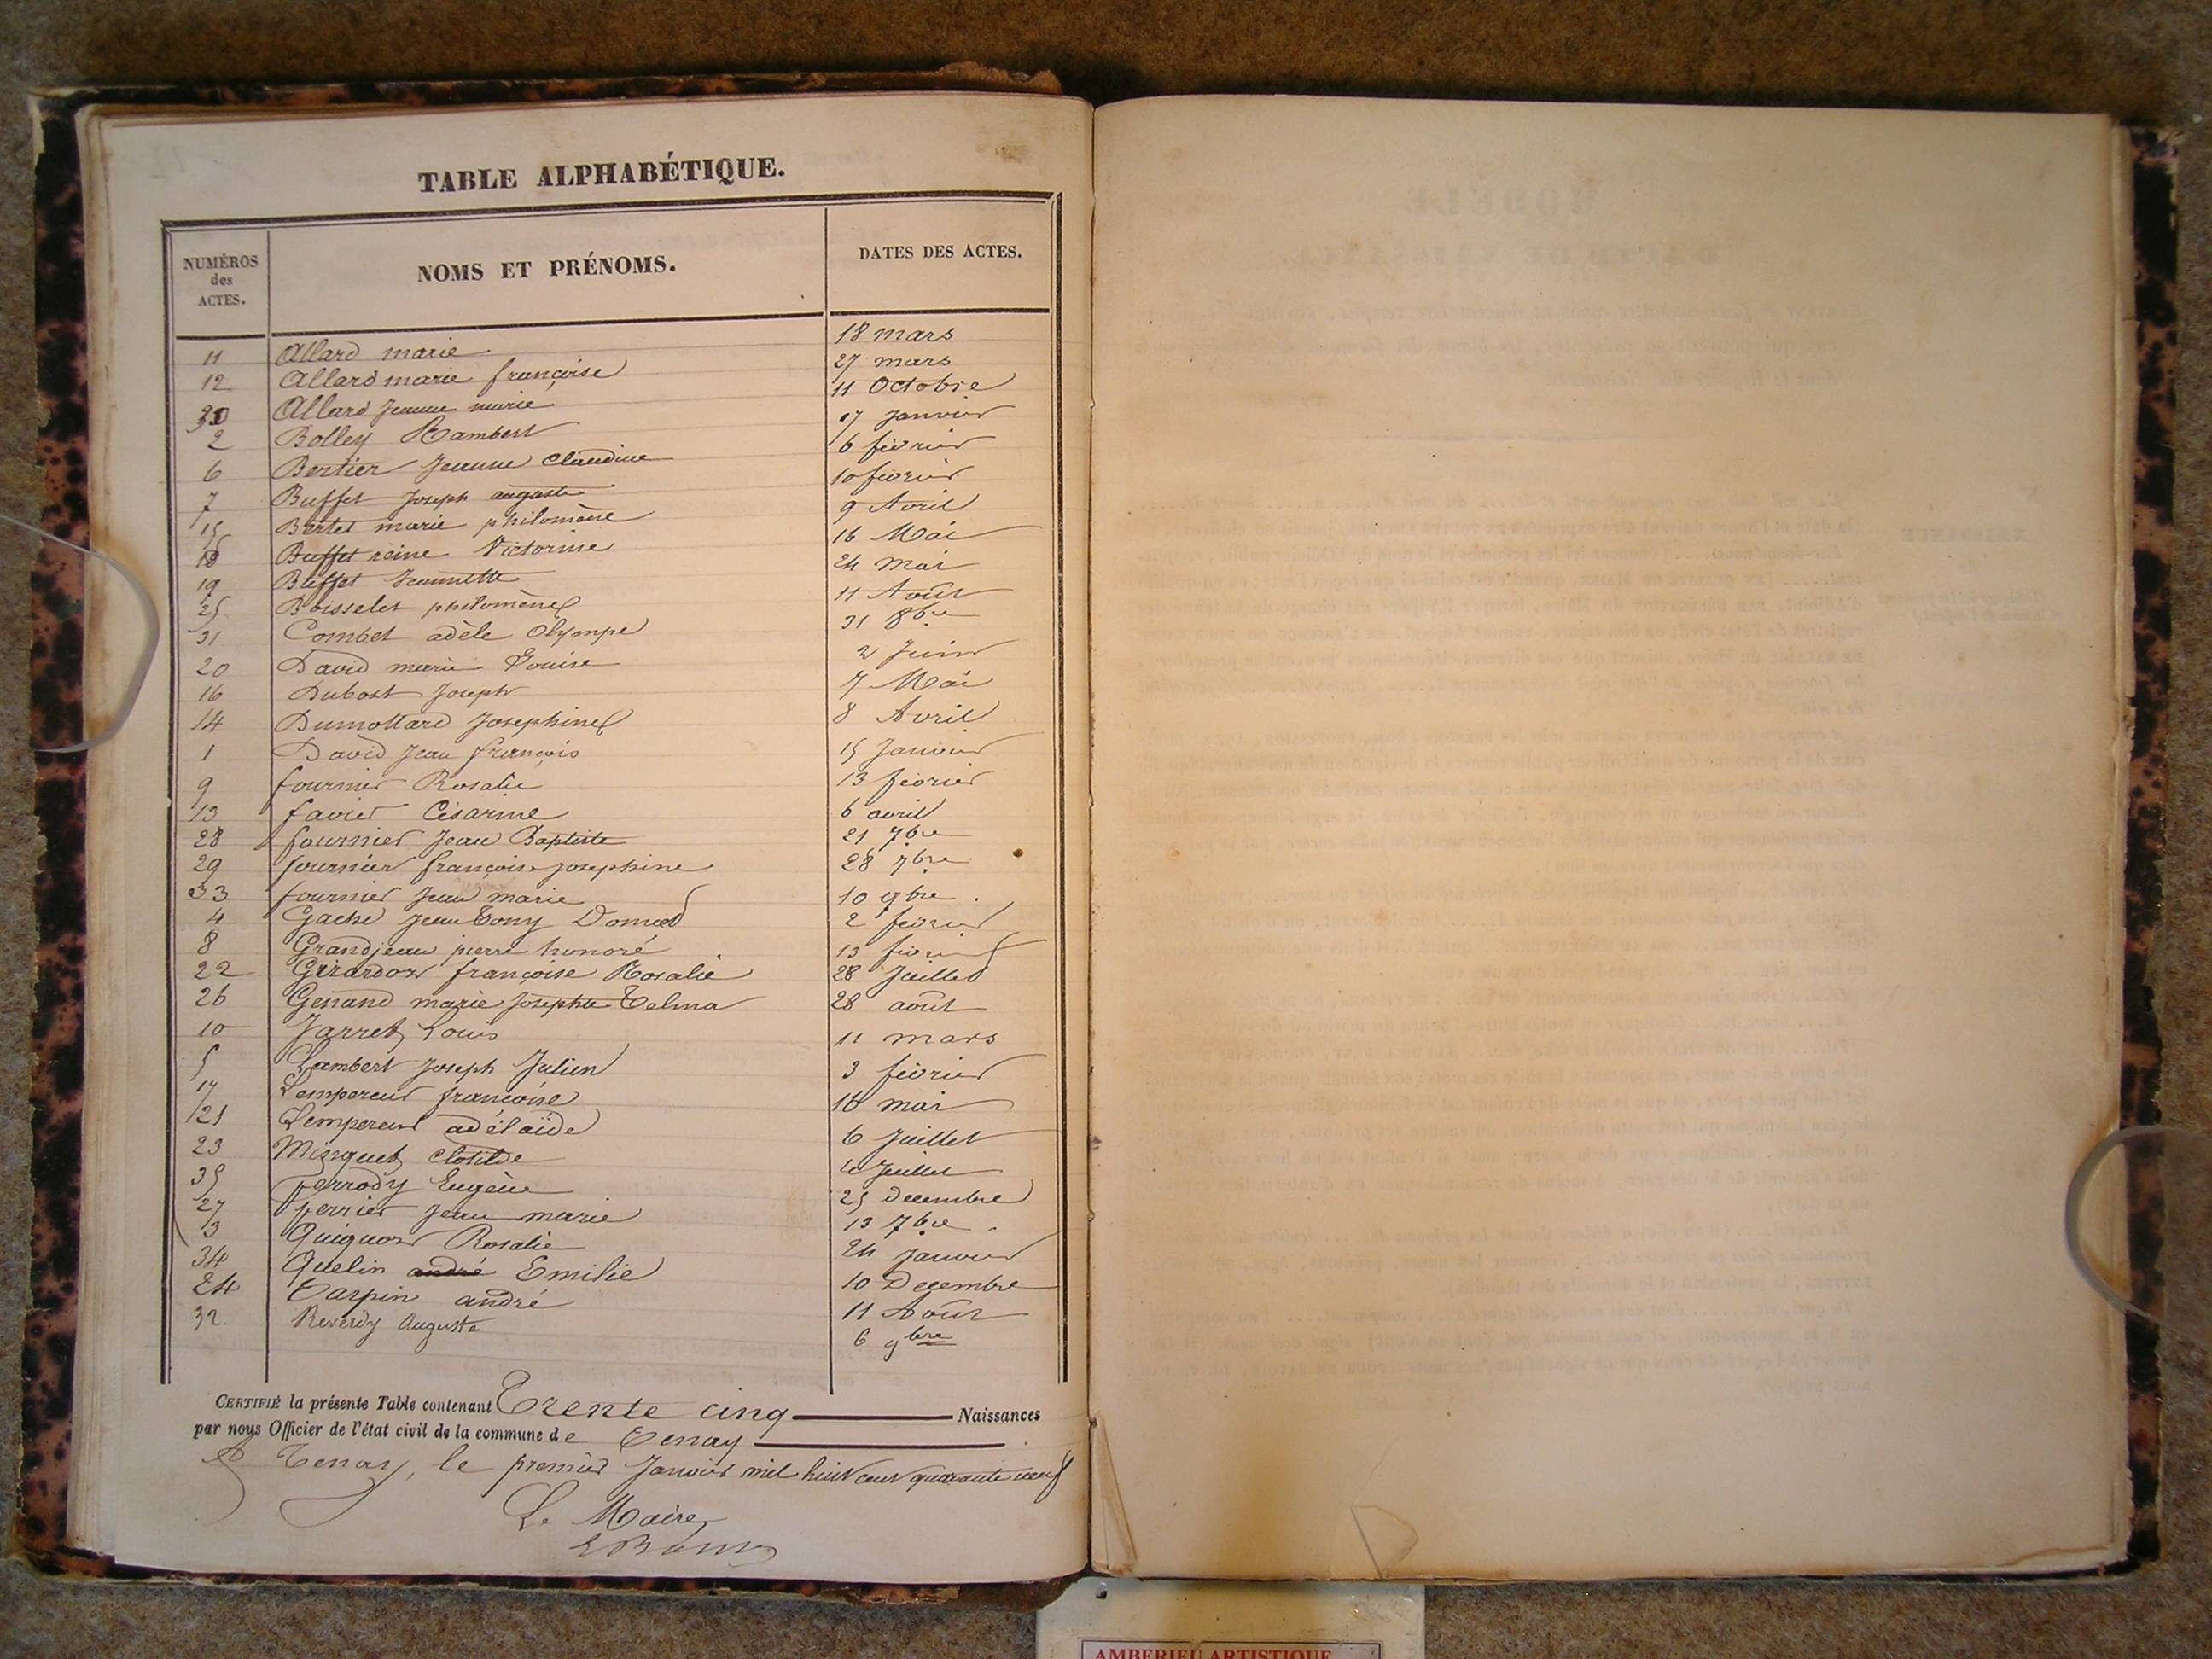 TABLE ALPHABÉTIQUE.
NUMÉROS des ACTES. NOMS ET PRÉNOMS. DATES DES ACTES.
11 Allard marie 18 mars
12 Allard marie françoise 27 mars
30 Allard Jeanne marie 11 Octobre
2 Bolley Rambert 17 Janvier
6 Bertier Jeanne Claudine 6 février
7 Buffet Joseph auguste 10 février
15 Bertet marie philomène 9 Avril
18 Buffet reine Victorine 16 Mai
19 Buffet Jeannette 24 mai
25 Boisselet philomène 11 Août
31 Combet adèle Olympe 31 8bre
20 David marie Louise 2 Juin
16 Dubost Joseph 7 Mai
14 Dumottard Josephine 8 Avril
1 David Jean françois 15 Janvier
9 fournier Rosalie 13 février
13 favier Césarine 6 avril
28 fournier Jean Baptiste 21 7bre
29 fournier françoise josephine 28 7bre
33 fournier Jean marie 10 9bre.
4 Gache Jean Tony 2 février
8 Grandjean pierre honoré 13 février
22 Girardon françoise Rosalie 28 Juillet
26 marie Josephte Telma 28 août
10 Jarret Louis 11 mars
5 Lambert Joseph Julien 3 février
17 Lempereur françoise 16 mai
21 Lempereur adélaïde 6 Juillet
23 Minguet Clotilde Juillet
35 perrody Eugène 25 decembre
27 perrier Jean marie 13 7bre.
3 Quiquon Rosalie 24 janvier
34 Quelin andré Emilie 10 Decembre
24 Tarpin andré 11 Août
32. Reverdy Auguste 6 9bre
CERTIFIÉ la présente Table contenant Trente cinq Naissances
par nous Officier de l'état civil de la commune de Tenay.
A Tenay, le premier Janvier mil huit cent quarante neuf
Le Maire
AMBERIEU ARTISTIQUE